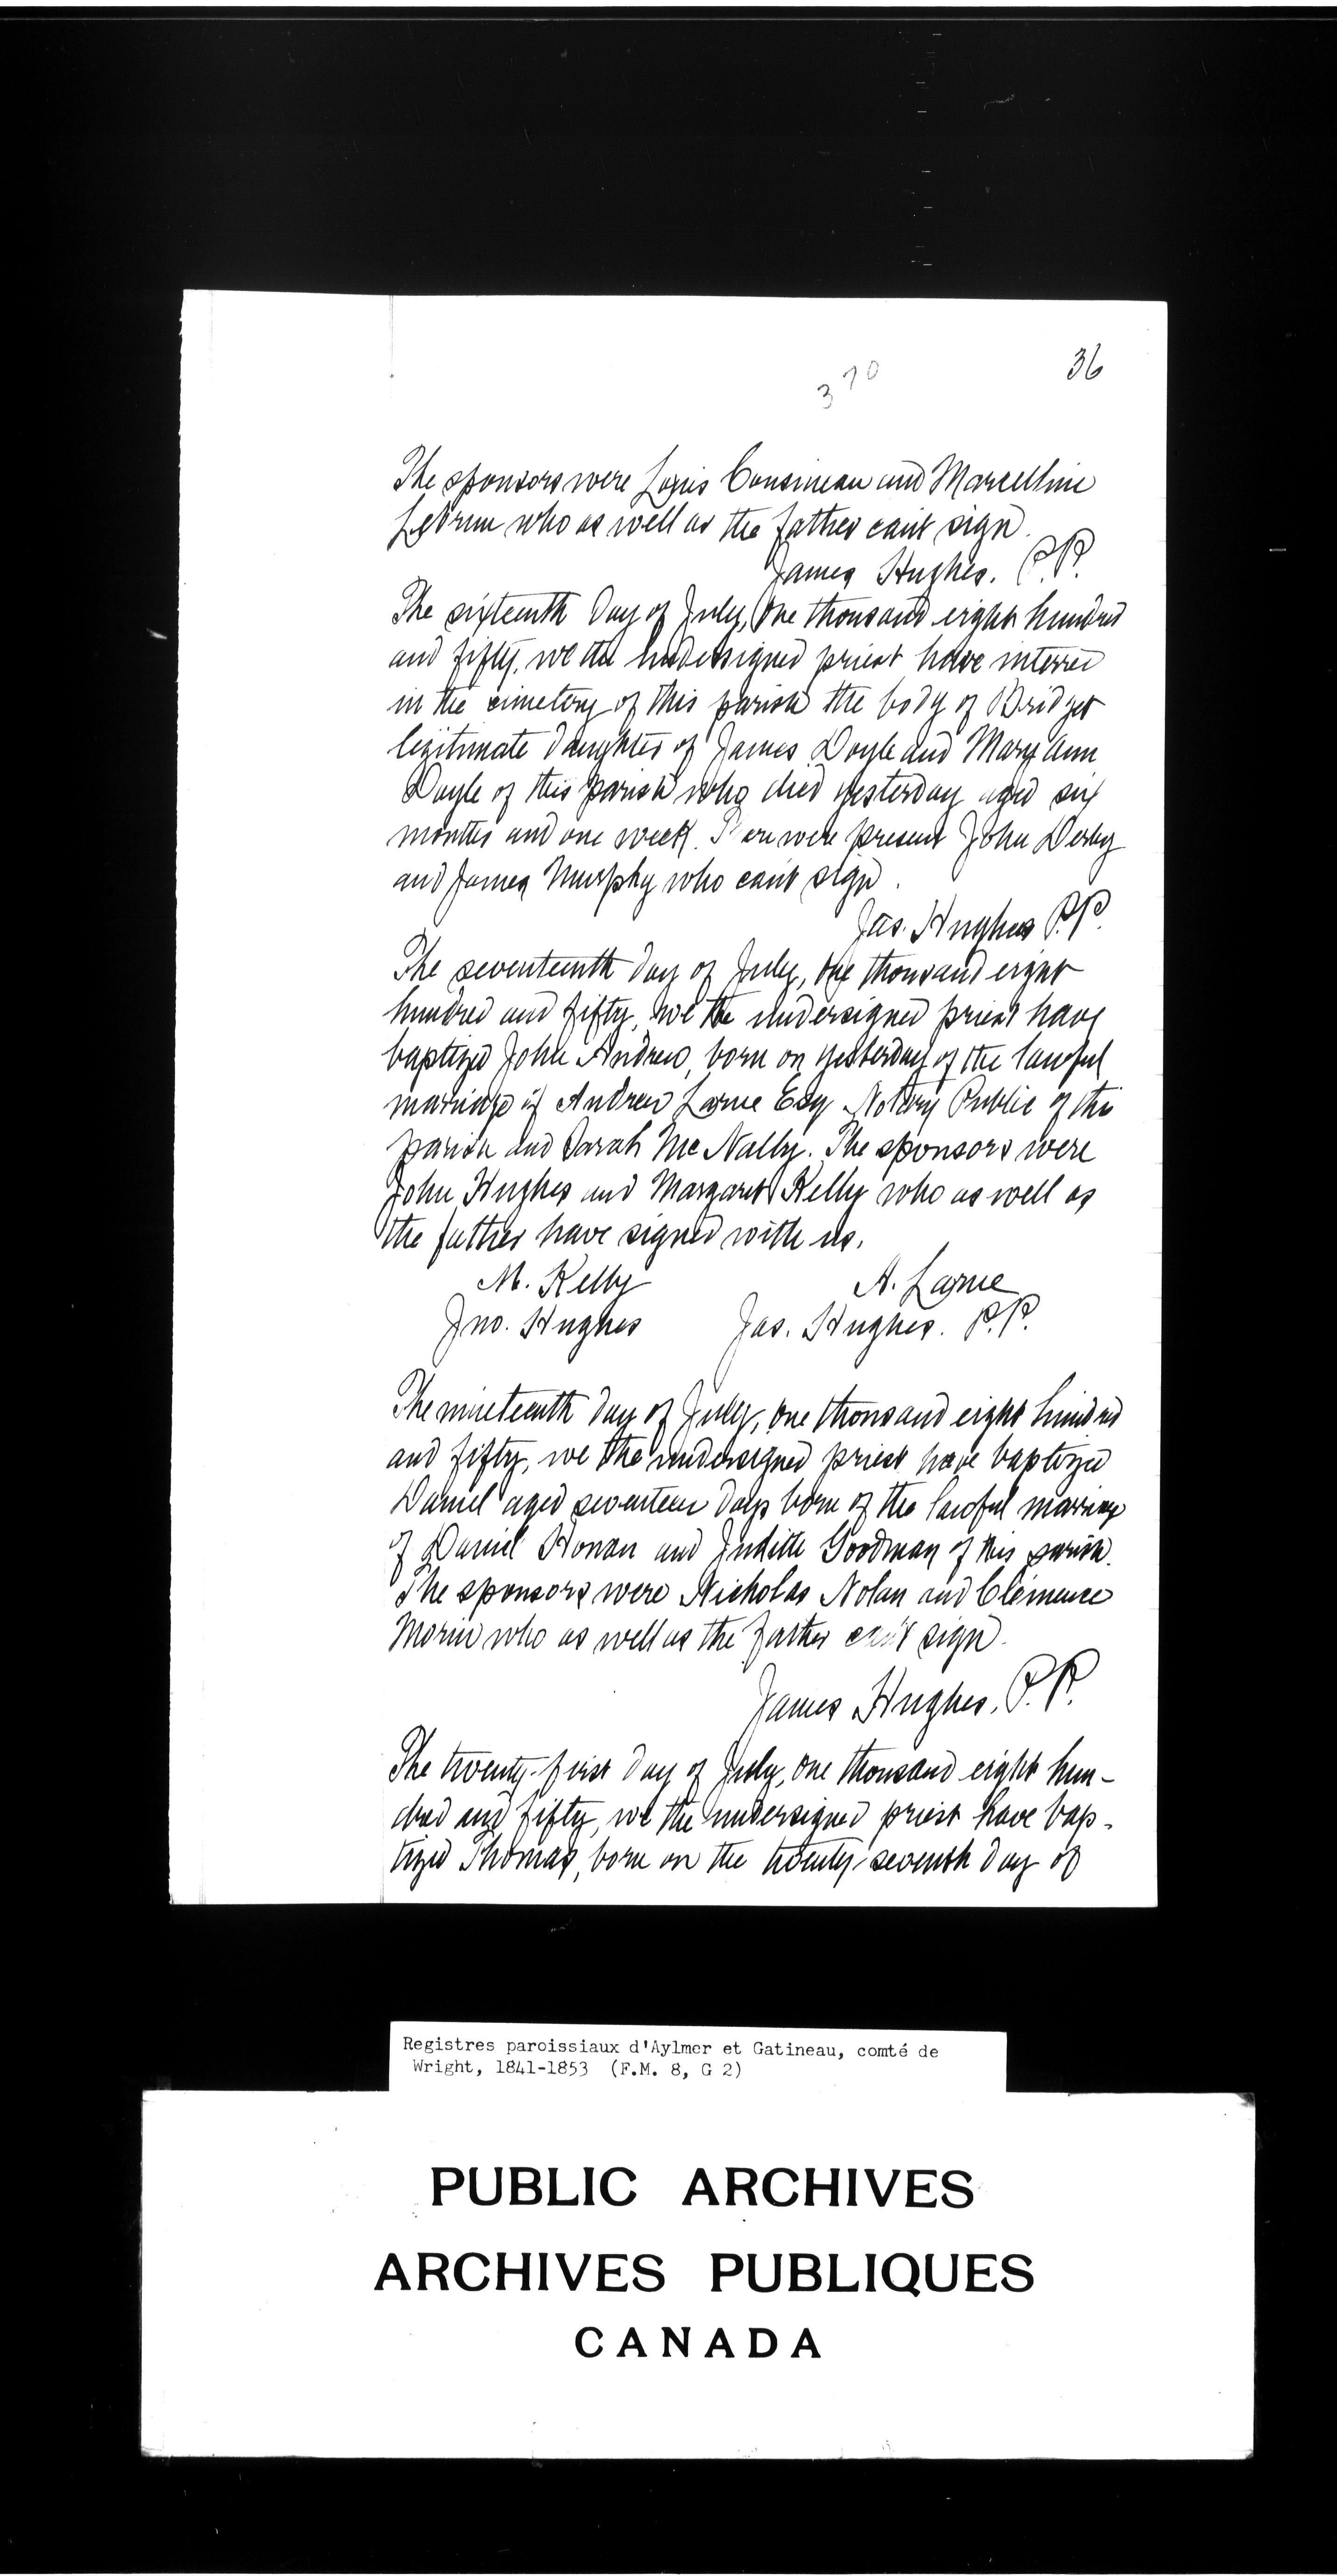 36
370
The sponsors were Louis Cousineau and Marcelline
who as well as the father can't sign.
James Hughes. P.P.
The sixteenth day of July, one thousand eight hundred
and fifty, we the undersigned priest have interred
in the cimetery of this parish the body of Bridget
legitimate daughter of James Doyle and Mary Ann
Doyle of this parish who died yesterday aged six
months and one week. There were present John Derby
and James Murphy who can't sign.
Jas. Hughes P.P.
The seventeenth day of July, one thousand eight
hundred and fifty, we the undersigned priest have
baptized John Andrew, born on yesterday of the lawful
marriage of Andrew Larue Esq Notary Public of this
parish and Sarah McNally. The sponsors were
John Hughes and Margaret Kelly who as well as
the father have signed with us.
M. Kelly A. Larue
Jno. Hughes Jas. Hughes. P.P.
The nineteenth day of July, one thousand eight hundred
and fifty, we the undersigned priest have baptized
Daniel aged seventeen days born of the lawful marriage
of Daniel Honan and Judith Goodman of this parish.
The sponsors were Nicholas Nolan and Clémence
Morin who as well as the father can't sign.
James Hughes. P.P.
The twenty-first day of July, one thousand eight hun-
dred and fifty, we the undersigned priest have bap-
tized Thomas, born on the twenty-seventh day of
Registres paroissiaux d'Aylmer et Gatineau, comté de
Wright, 1841-1853 (F.M. 8, G 2)
PUBLIC ARCHIVES
ARCHIVES PUBLIQUES
CANADA